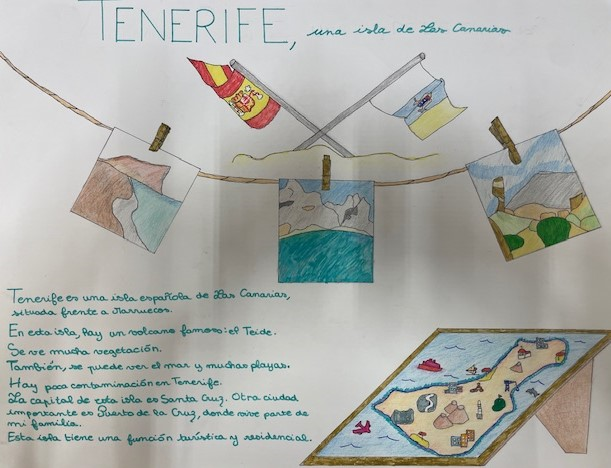 TENERIFE, una isla de Las Canarias
Tenerife es una isla española de Las Canarias,
situada frente a Marruecos.
En esta isla, hay un volcano famoso: el Teide.
Se ve mucha vegetación.
También, se puede ver el mar y muchas playas.
Hay poca contaminación en Tenerife.
La capital de esta isla es Santa Cruz. Otra ciudad
importante es Puerto de la Cruz, donde vive parte de
mi familia.
Esta isla tiene una función turística y residencial.